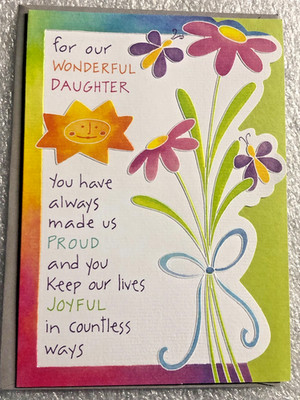 for our
WONDERFUL
DAUGHTER
You have
always
made us
PROUD
and you
Keep our lives
JOYFUL
in countless
ways